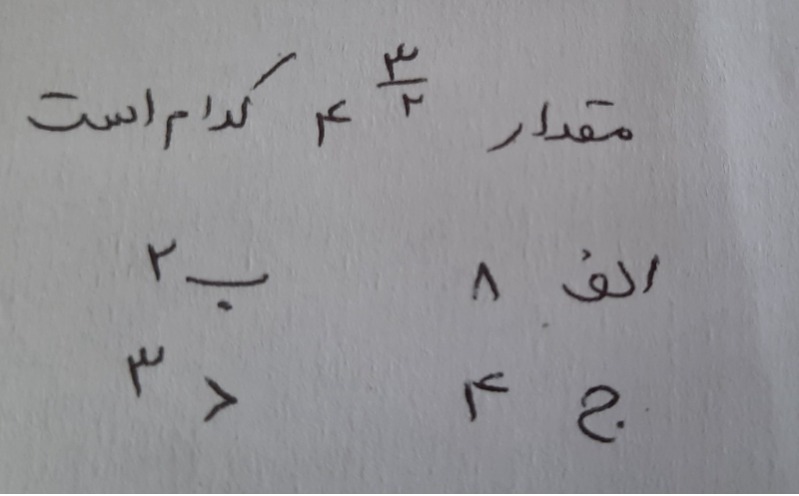 مقدار ۴^(۳/۲) کدام است
الف ۸ ب ۲
ج ۴ د ۳